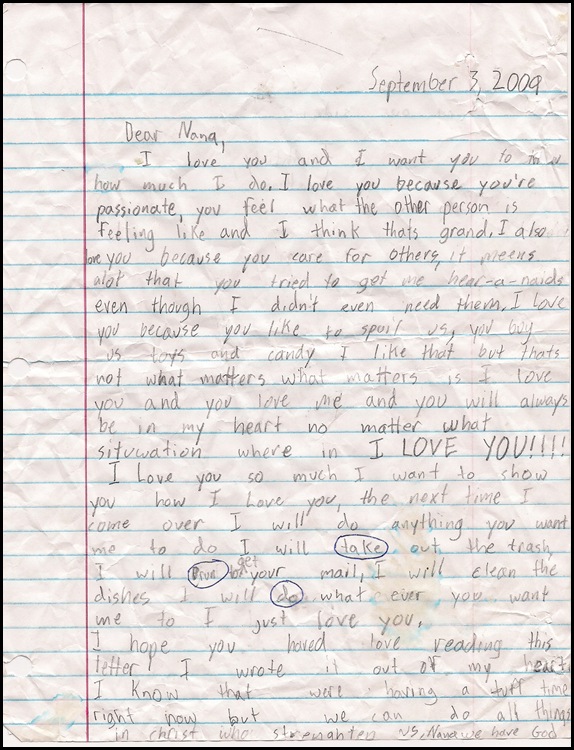 September 3, 2009
Dear Nana,
I love you and I want you to
how much I do. I love you because you're
passionate, you feel what the other person is
feeling like and I think thats grand. I also
love you because you care for others, it meens
alot that you tried to get me hear-a-naids
even though I didn't even need them. I love
you because you like to spoil us, you buy
us toys and candy I like that but thats
not what matters what matters is I love
you and you love me and you will always
be in my heart no matter what
situwation where in I LOVE YOU!!!!
I Love you so much I want to show
you how I Love you, the next time I
come over I will do anything you want
me to do I will take out the trash,
I will get your mail, I will clean the
dishes I will do what ever you want
me to I just love you,
I hope you haved love reading this
letter I wrote it out of my heart
I know that were having a tuff time
right now but we can do all things
in christ who strenghten us, Nana we have God